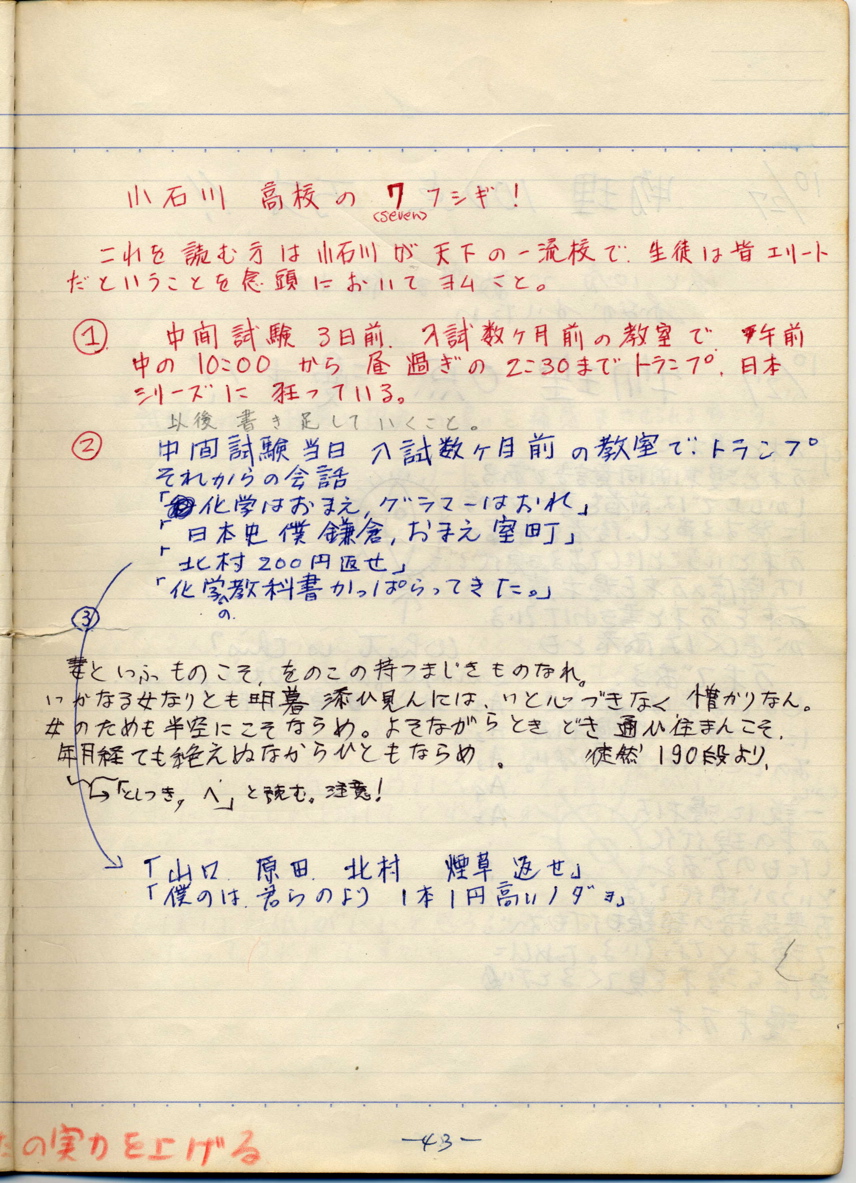 小石川 高校の 7 フシギ!
(seven)
これを 読む方は 小石川 が 天下 の 一流校で、生徒は 皆 エリート
だということを 念頭 に おいて ヨムこと。
① 中間試験 3日前、入試数ヶ月前の教室で、午前
中の 10:00 から 昼過ぎの 2:30まで トランプ、日本
シリーズに 狂っている。
以後 書き足して いくこと。
② 中間試験当日 入試数ヶ月前 の教室で、トランプ
それからの会話
「化学はおまえ,グラマーはおれ」
「日本史 僕 鎌倉,おまえ 室町」
「北村 200円返せ」
「化学の教科書かっぱらってきた。」
③
妻といふ ものこそ、をのこの 持つまじき ものなれ。
いかなる女なりとも 明暮 添ひ見んには、いと心づきなく 憎かりなん。
女のためも 半空に こそ ならめ。よそながら とき どき 通ひ住まんこそ、
年月経ても絶えぬなからひともならめ。 徒然 190段より、
→「としつき,へ」と読む。注意!
「山口 原田 北村 煙草 返せ」
「僕のは、君らのより 1本1円高いノダョ」
の実力を上げる
－43－